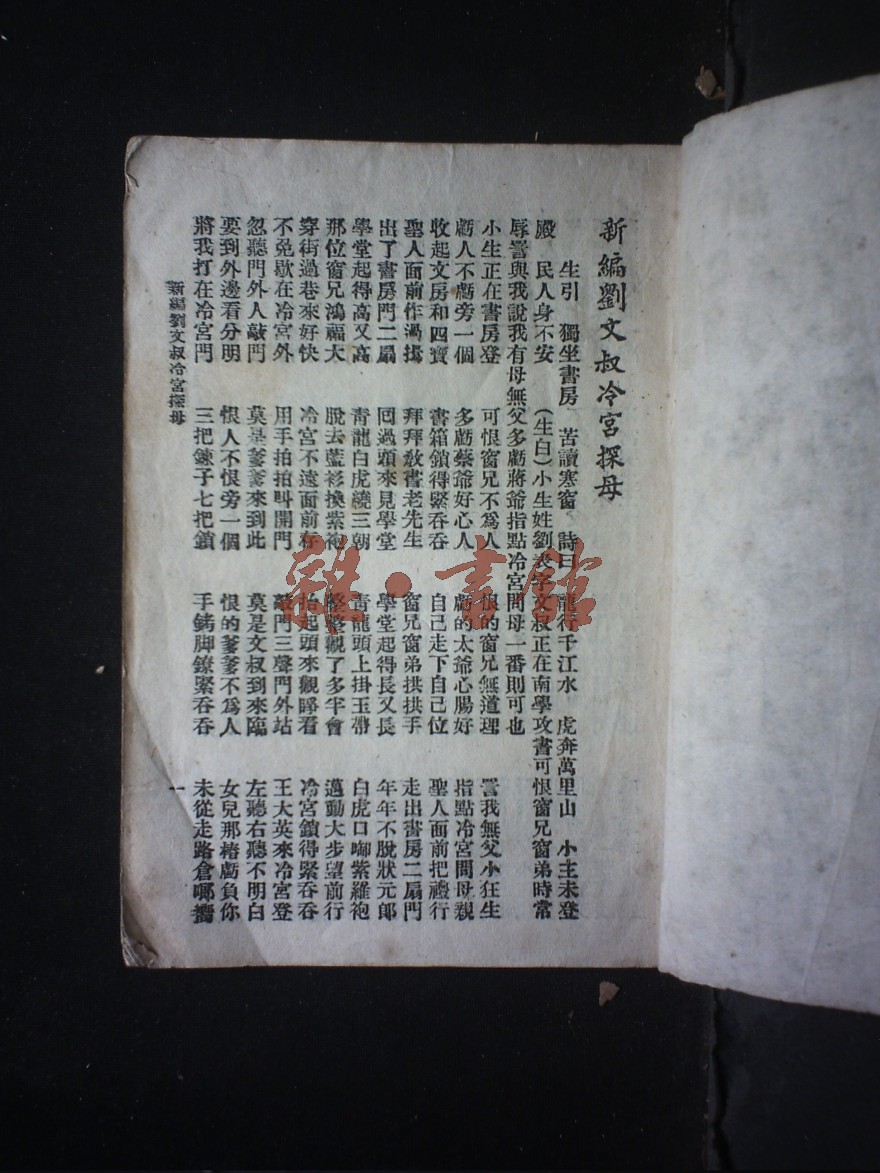 新編劉文叔冷宮探母
生引　獨坐書房　苦讀寒窗　詩曰　龍行千江水　虎奔萬里山　小主未登
殿　民人身不安　(生白)小生姓劉表字文叔正在南學攻書可恨窗兄窗弟時常
辱詈與我說我有母無父多虧蔣爺指點冷宮問母一番則可也
小生正在書房登　可恨窗兄不爲人　恨的窗兄無道理　詈我無父小狂生
虧人不虧旁一個　多虧蔡爺好心人　虧的太爺心腸好　指點冷宮問母親
收起文房和四寶　書箱鎖得緊吞吞　自己走下自己位　聖人面前把禮行
聖人面前作過揖　拜拜教書老先生　窗兄窗弟拱拱手　走出書房二扇門
出了書房門二扇　囘過頭來見學堂　學堂起得長又長　年年不脫狀元郎
學堂起得高又高　青龍白虎繞三朝　青龍頭上掛玉帶　白虎口啣紫羅袍
那位窗兄鴻福大　脫去藍衫換紫袍　整整觀了多半會　邁動大步望前行
穿街過巷來好快　冷宮不遠面前存　抬起頭來觀睜看　冷宮鎖得緊吞吞
不免歇在冷宮外　用手拍拍呌開門　敲門三聲門外站　王大英來冷宮登
忽聽門外人敲門　莫是爹爹來到此　莫是文叔到來臨　左聽右聽不明白
要到外邊看分明　恨人不恨旁一個　恨的爹爹不爲人　女兒那樁虧負你
將我打在冷宮門　三把鍊子七把鎖　手銬脚鐐緊吞吞　未從走路倉啷響
新編劉文叔冷宮探母　一
雜·書館